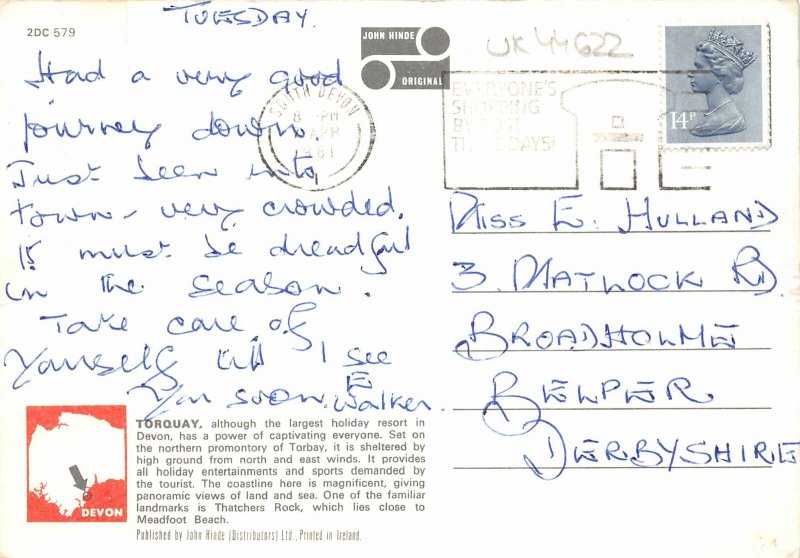 2DC 579
TUESDAY.
Had a very good
journey down.
Just been into
town - very crowded.
It must be dreadful
in the season.
Take care of
Yourself till I see
You soon. E Walker.
JOHN HINDE
ORIGINAL
UK 44622
SOUTH DEVON
8 PM
APR
1981
EVERYONE'S
SHOPPING
THESE DAYS!
14P
MISS E. HULLAND
3, MATLOCK RD
BROADHOLME
BELPER.
DERBYSHIRE
DEVON
TORQUAY, although the largest holiday resort in
Devon, has a power of captivating everyone. Set on
the northern promontory of Torbay, it is sheltered by
high ground from north and east winds. It provides
all holiday entertainments and sports demanded by
the tourist. The coastline here is magnificent, giving
panoramic views of land and sea. One of the familiar
landmarks is Thatchers Rock, which lies close to
Meadfoot Beach.
Published by John Hinde (Distributors) Ltd., Printed in Ireland.